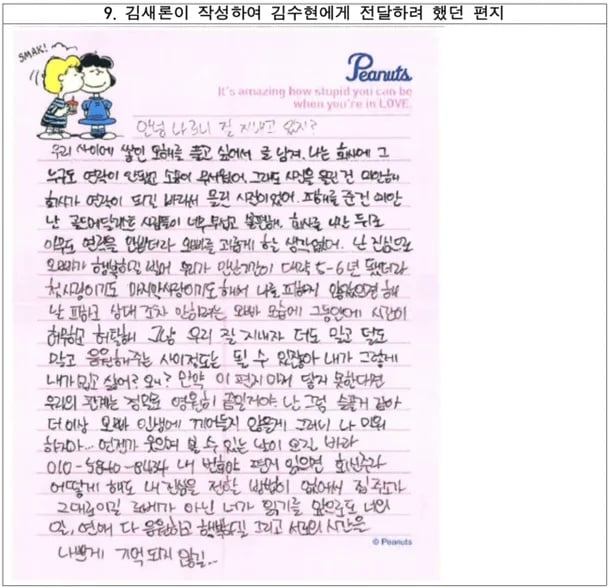 9. 김새론이 작성하여 김수현에게 전달하려 했던 편지
SMAK!
Peanuts
It's amazing how stupid you can be
when you're in LOVE.
안녕 나 르니 잘 지내고 있지?
우리 사이에 쌓인 오해를 풀고 싶어서 글 남겨. 나는 회사에 그
누구도 연락이 안됐고 소송이 무서웠어. 그래도 사진을 올린 건 미안해
회사가 연락이 되길 바라서 올린 사진이었어. 피해를 준건 미안
난 골드메달리스트 사람들이 너무 무섭고 불편해. 회사를 나간 뒤로
아무도 연락을 안받더라 오빠를 괴롭게 할 생각없어. 난 진심으로
오빠가 행복하길 빌어 우리가 만난기간이 대략 5-6년 됐더라
첫사랑이기도 마지막사랑이기도해서 나를 피하지 않았으면 해
난 피하고 상대 조차 안하려는 오빠 모습에 그동안에 시간이
허무하고 허탈해 그냥 우리 잘 지내자 더도 말고 덜도
말고 응원해주는 사이정도는 될 수 있잖아 내가 그렇게
내가 밉고 싫어? 왜? 만약 이 편지마저 닿지 못한다면
우리의 관계는 정말로 영원히 끝일거야. 난 그럼 슬플거 같아
더 이상 오빠 인생에 끼어들지 않을게 그러니 나 미워
하지마... 언젠가 웃으며 볼 수 있는 날이 오길 바라
010-5840-8434 내 번호야 편지 읽으면 회신주라
어떻게 해도 내 진심을 전할 방법이 없어서 집주소가
그대로이길 로베가 아닌 너가 읽기를 앞으로도 너의
일, 연애 다 응원하고 행복하길 그리고 서로의 시간을
나쁘게 기억 되지 않길...
© Peanuts